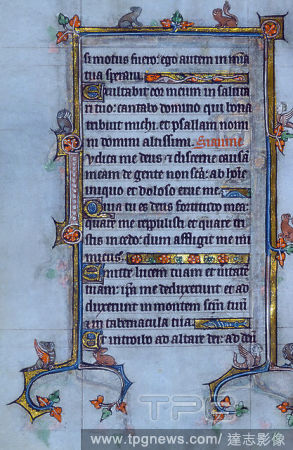 si motus fuero: ego autem in mia
tua speravi.
Exultabit cor meum in saluta
ri tuo: cantabo domino qui bona
tribuit michi: et psallam nomi
ni domini altissimi.
Iudica me deus et discerne causam
meam de gente non sca: ab hoie
iniquo et doloso erue me.
Quia tu es deus fortitudo mea:
quare me repulisti et quare tri
stis incedo: dum affligit me ini
micus.
Emitte lucem tuam et veritate
tuam: ipa me deduxerunt et ad
duxerunt in montem scm tuu
et in tabernacula tua.
Et introibo ad altare dei: ad deu
TPG
www.tpgnews.com / 達志影像